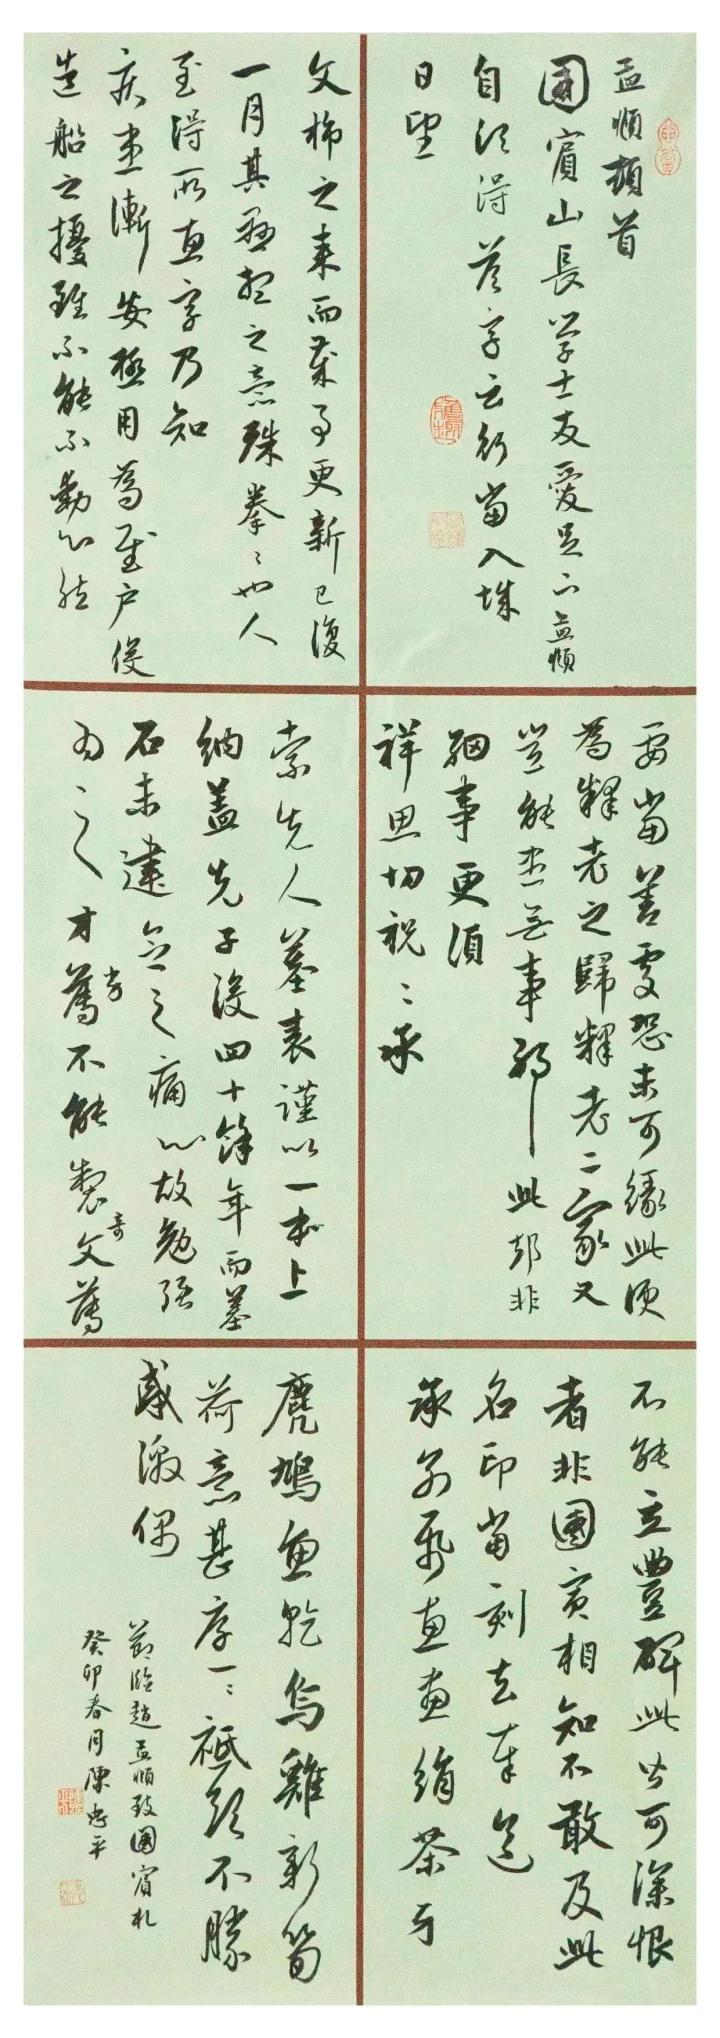 孟頫頓首
國賓山長學士友愛足下孟頫
自頃得答字云行當入城
日望
文旆之來而幕事更新已復
一月其懸想之意殊拳〻也人
至得所惠字乃知
疾患漸安極用為慰戶役
造船之擾雖不能不動心然
要當善處恐未可緣此便
為釋老之歸釋老二家又
豈能患無事耶此却非
細事更須
祥思切祝〻承
索先人墓表謹以一本上
納蓋先子沒四十餘年而墓
石未建念之痛心故勉強
為之〻才薄不能製文薄
劣 奇
不能立豐碑此皆可深恨
者非國賓相知不敢及此
名印當刻去奉送
承前發惠畫絹茶牙
麂鳩魚乾烏雞新筍
荷意甚厚一〻祗領不勝
感激偶
節臨趙孟頫致國賓札
癸卯春月陳忠平